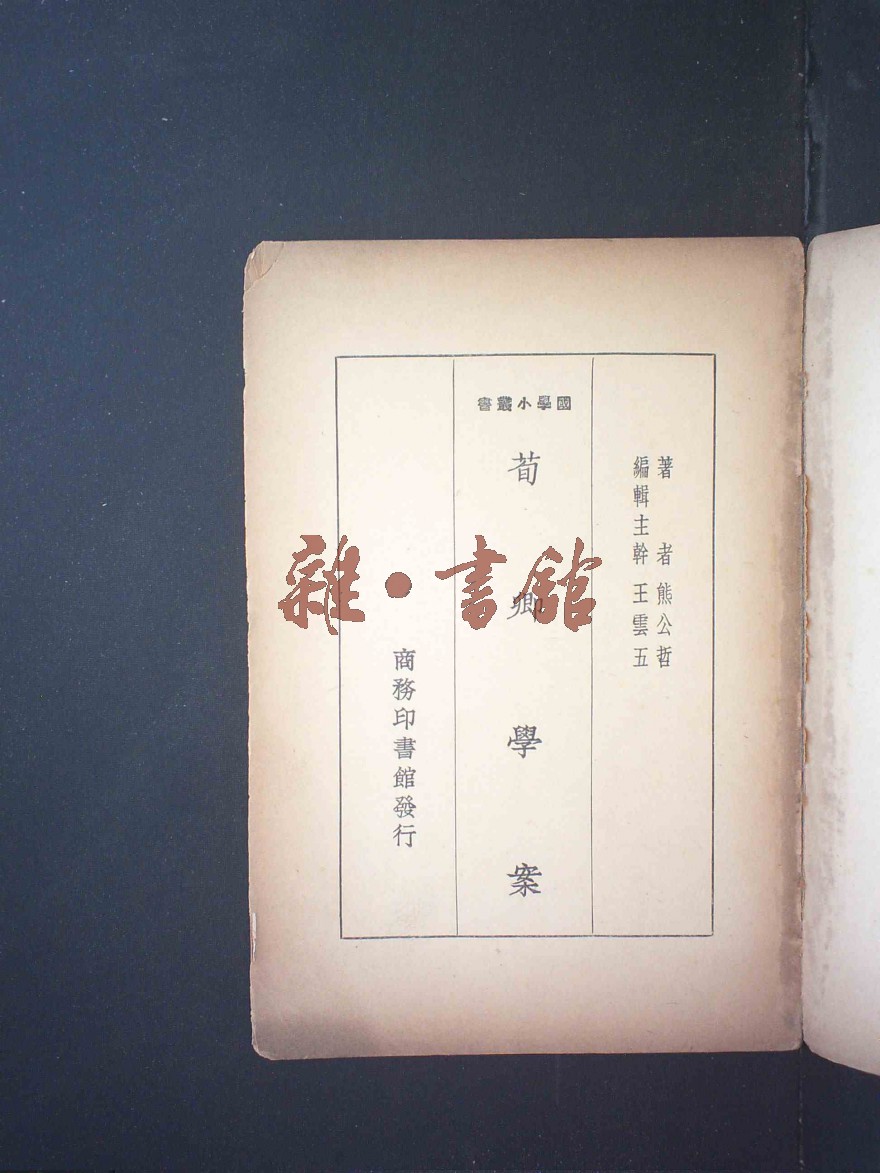 著者熊公哲
編輯主幹王雲五
國學小叢書
荀卿學案
商務印書館發行
雜·書館